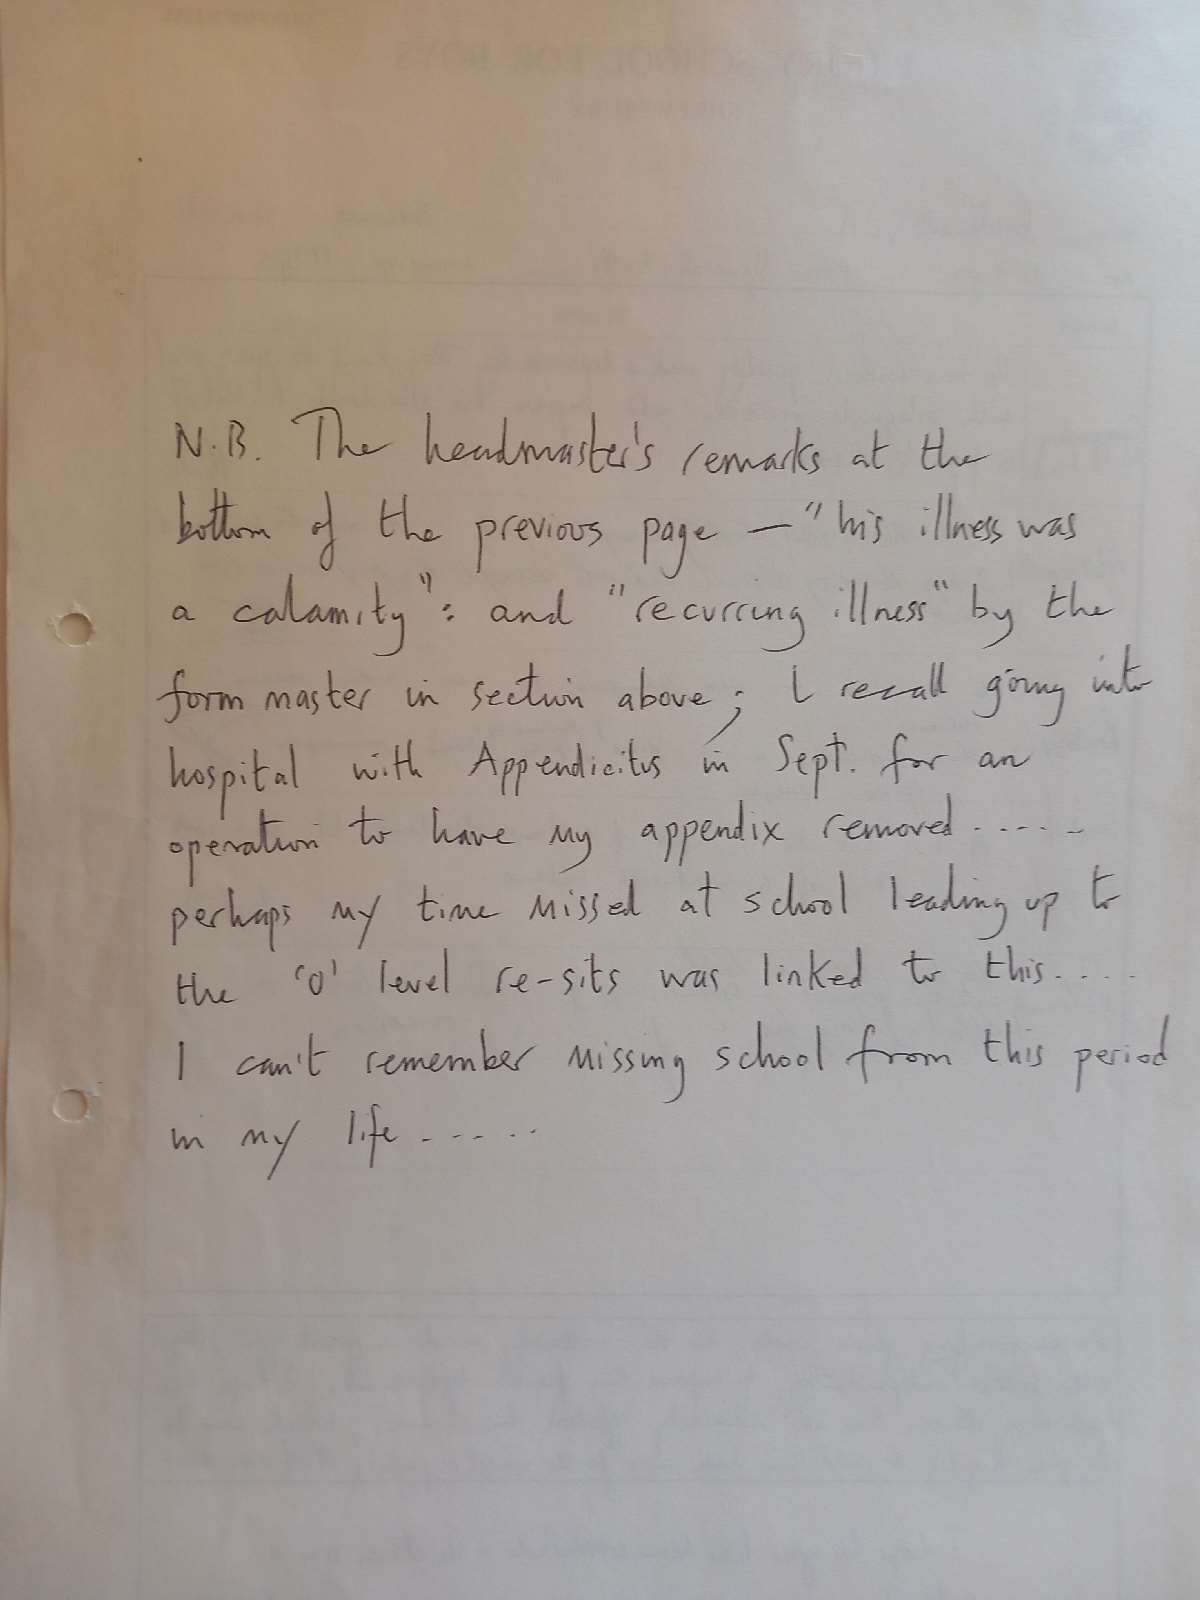 N.B. The headmaster's remarks at the
bottom of the previous page — "his illness was
a calamity": and "recurring illness" by the
form master in section above; I recall going into
hospital with Appendicitus in Sept. for an
operation to have my appendix removed.....
perhaps my time missed at school leading up to
the 'O' level re-sits was linked to this....
I can't remember missing school from this period
in my life.....